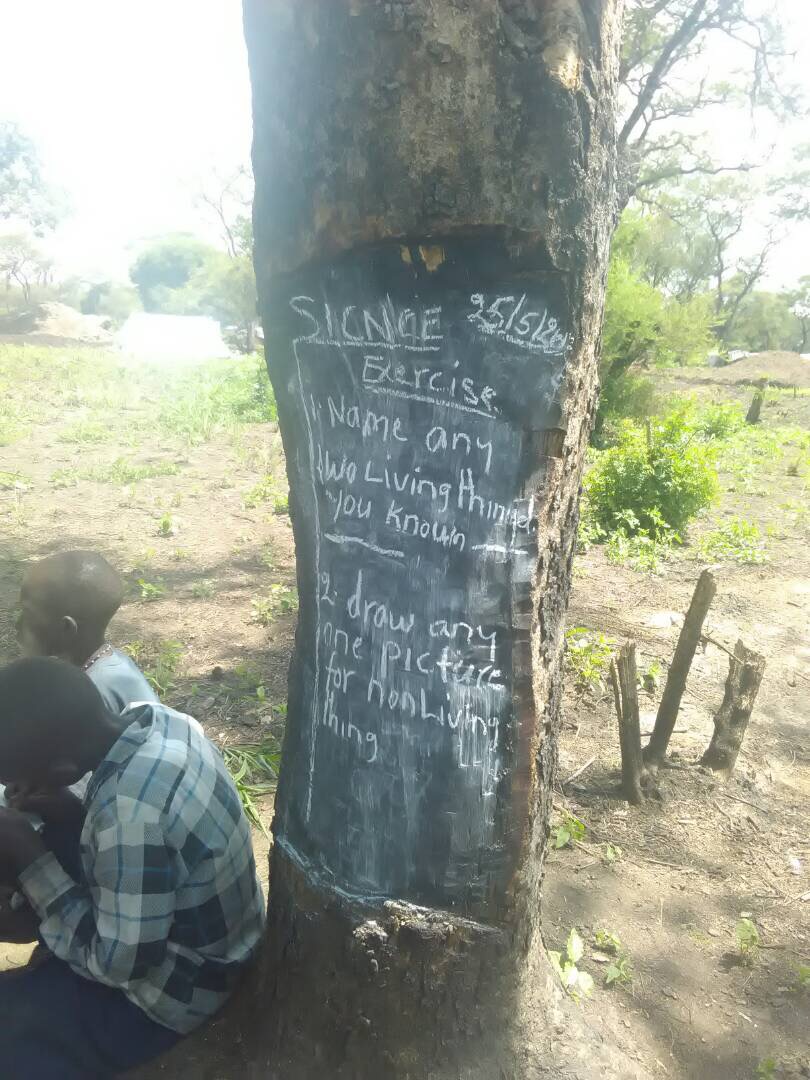 SICNCE 25/5/20
Exercise
1. Name any
two Living thinged.
you Known
2. draw any
one picture
for nonLiving
thing